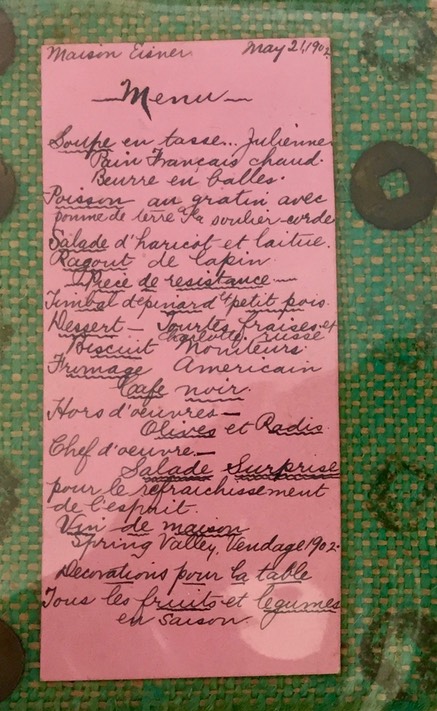 Maison Eisner. May 21, 1902
Menu
Soupe en tasse... Julienne
Pain Francais chaud.
Beurre en balles.
Poisson au gratin avec
pomme de terre a la soulier-corde
Salade d'haricot et laitue.
Ragout de lapin
Piece de resistance
Timbal d'epinard et petit pois
Dessert — Tourtes fraises et
Charlotte russe
Biscuit Moniteurs.
Fromage Americain
Cafe noir.
Hors d'oeuvres —
Olives et Radis
Chef d'oeuvre —
Salade Surprise
pour le refraichissement
de l'esprit.
Vin de maison
Spring Valley, Vendage 1902.
Decorations pour la table
Tous les fruits et legumes
en saison.